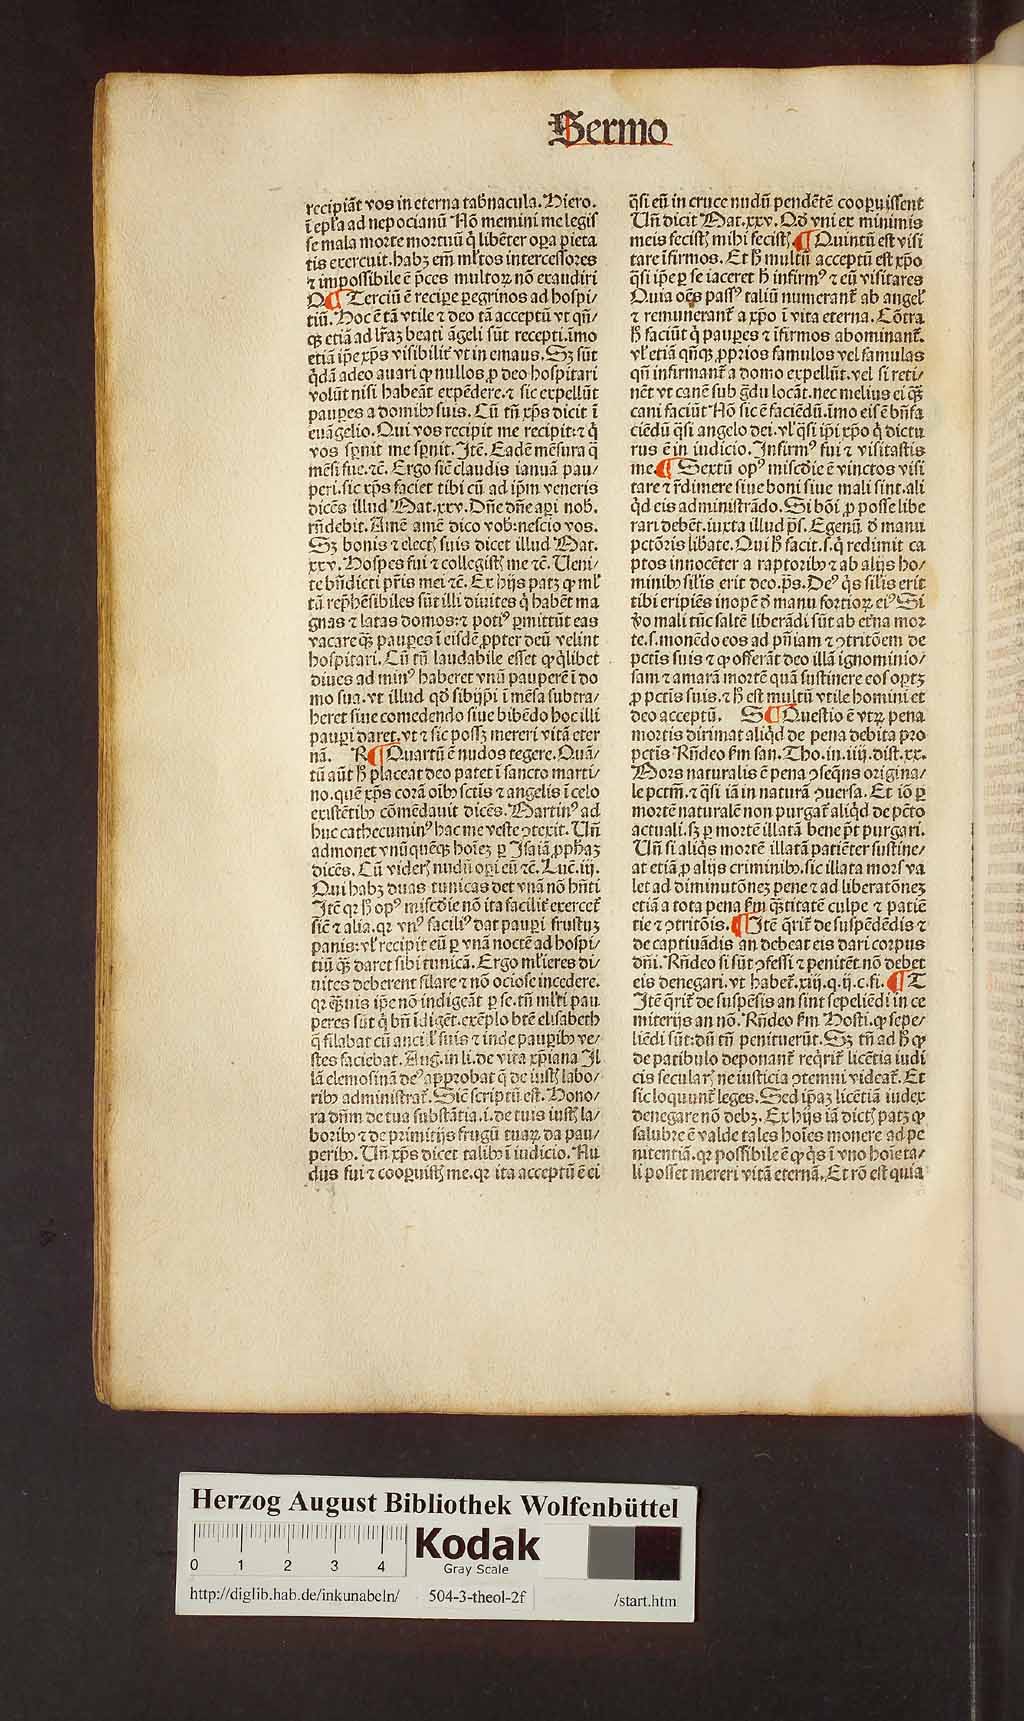 Sermo
recipiāt vos in eterna tab̄nacula. Hiero.
ī ep̄la ad nepocianū Nō memini me legis
se mala morte mortuū q̇ libēter oꝑa pieta
tis exercuit. habꝫ em̄ ml̄tos intercessores
⁊ impossibile ē p̄ces multoꝝ nō exaudiri
Q ¶ Terciū ē recipe ꝑegrinos ad hospi/
tiū. Hoc ē tā vtile ⁊ deo tā acceptū vt qn̄/
qꝫ etiā ad lr̄aꝫ beati āgeli sūt recepti. īmo
etiā ip̄e xp̄s visibilit̄ vt in emaus. Sꝫ sūt
q̇dā adeo auari ꝙ nullos ꝓ deo hospitari
volūt nisi habeāt expēdere. ⁊ sic expellūt
pauꝑes a domibꝰ suis. Cū tn̄ xp̄s dicit ī
euāgelio. Qui vos recipit me recipit: ⁊ q̇
vos sꝑnit me sꝑnit. Itē. Eadē mēsura q̄
mēsi fue. ⁊c. Ergo siē claudis ianuā pau/
peri. sic xp̄s faciet tibi cū ad ip̄m veneris
dicēs illud Mat. xxv. Dn̄e dn̄e aꝑi nob̄.
rn̄debit. Amē amē dico vob̄: nescio vos.
Sꝫ bonis ⁊ elect̄ suis dicet illud Mat.
xxv. Hospes fui ⁊ collegist̄ me ⁊c. Ueni/
te bn̄dicti pr̄is mei ⁊c. Ex hijs patꝫ ꝙ ml̄
tū rep̄hēsibiles sūt illi diuites q̇ habēt ma
gnas ⁊ latas domos: ⁊ potiꝰ ꝑmittūt eas
vacare qꝫ̄ pauꝑes ī eisdē ꝓpter deū velint
hospitari. Cū tn̄ laudabile esset ꝙ q̇libet
diues ad minꝰ haberet vnū pauperē ī do
mo sua. vt illud qd̄ sibijp̄i ī mēsa subtra/
heret siue comedendo siue bibēdo hoc illi
pauꝑi daret. vt ⁊ sic possꝫ mereri vitā eter
nā. R ¶ Quartū ē nudos tegere. Quā/
tū aūt h̄ placeat deo patet ī sancto marti/
no. quē xp̄s corā oībꝰ sctīs ⁊ angelis ī celo
existētibꝰ cōmēdauit dicēs. Martinꝰ ad
huc cathecuminꝰ hac me veste ꝯtexit. Un̄
admonet vnūquēqꝫ hoīeꝫ ꝑ Isaiā ꝓphaꝫ
dicēs. Cū vider̄ nudū oꝑi eū ⁊c. Luc̄. iij.
Qui habꝫ duas tunicas det vnā nō hn̄ti
Itē qꝛ h̄ opꝰ miscd̄ie nō ita facilit̄ exercet̄
sīc ⁊ alia. qꝛ vnꝰ faciliꝰ dat pauꝑi frustuꝫ
panis: vl̄ recipit eū ꝑ vnā noctē ad hospi/
tiū qꝫ̄ daret sibi tunicā. Ergo ml̄ieres di/
uites deberent filare ⁊ nō ociose incedere.
qꝛ q̄ꝫuis ip̄e nō indigeāt ꝑ se. tn̄ ml̄ti pau
peres sūt q̇ bn̄ īdigēt. exēplo btē elisabeth
q̄ filabat cū ancil̄ suis ⁊ inde pauꝑibꝰ ve/
stes faciebat. Aug. in li. de vita xp̄iana Il
lā elemosinā deꝰ apꝓbat q̄ de iust̄ labo/
ribꝰ administrat̄. Siē scriptū est. Hono/
ra dn̄m de tua substātia. i. de tuis iust̄ la/
boribꝰ ⁊ de primitijs frugū tuaꝝ da pau/
peribꝰ. Un̄ xp̄s dicet talibꝰ ī iudicio. Nu
dus fui ⁊ cooꝑuist̄ me. qꝛ ita acceptū ē ei
q̄si eū in cruce nudū pendētē cooꝑuissent
Un̄ dicit Mat. xxv. Qd̄ vni ex minimis
meis fecist̄ mihi fecist̄ ¶ Quintū est visi
tare īfirmos. Et h̄ multū acceptū est xp̄o
q̄si ip̄e ꝑ se iaceret h̄ infirmꝰ ⁊ eū visitares
Quia oēs passꝰ taliū numerant̄ ab angel̄
⁊ remunerant̄ a xp̄o ī vita eterna. Cōtra
h̄ faciūt q̇ pauꝑes ⁊ īfirmos abominant̄.
vl̄ etiā qn̄qꝫ ꝓprios famulos vel famulas
qn̄ infirmant̄ a domo expellūt. vel si reti/
nēt vt canē sub g̊du locāt. nec melius ei qꝫ̄
cani faciūt Nō sic ē faciēdū. īmo eis ē bn̄fa
ciēdū q̄si angelo dei. vl̄ q̄si ip̄i xp̄o q̇ dictu
rus ē in iudicio. Infirmꝰ fui ⁊ visitastis
me. ¶ Sextū opꝰ miscd̄ie ē vinctos visi
tare ⁊ r̄dimere siue boni siue mali sint. ali
q̇d eis administrādo. Si bōi ꝓ posse libe
rari debēt. iuxta illud p̄s. Egenū d̄ manu
pctōris lib̄ate. Qui h̄ facit. s. q̇ redimit ca
ptos innocēter a raptoribꝰ ⁊ ab alijs ho/
minibꝰ silis erit deo. p̄s. Deꝰ q̇s silis erit
tibi eripiēs inopē d̄ manu fortioꝝ eiꝰ Si
v̊o mali tūc saltē liberādi sūt ab et̄na mor
te. s. monēdo eos ad pn̄iam ⁊ ꝯtritōem de
pctīs suis ⁊ ꝙ offerāt deo illā ignominio/
sam ⁊ amarā mortē quā sustinere eos oꝑtꝫ
ꝓ pctīs suis. ⁊ h̄ est multū vtile homini et
deo acceptū. S ¶ Questio ē vtꝝ pena
mortis dirimat aliq̇d de pena debita pro
pctīs Rn̄deo fm̄ san. Tho. in. iiij. dist. xx.
Mors naturalis ē pena ꝯseq̄ns origina/
le pctm̄. ⁊ q̄si iā in naturā ꝯuersa. Et iō ꝑ
mortē naturalē non purgat̄ aliq̇d de pctō
actuali. sꝫ ꝑ mortē illatā bene p̄t purgari.
Un̄ si aliq̇s mortē illatā patiēter sustine/
at etiā ꝓ alijs criminibꝰ. sic illata mors va
let ad diminutōneꝫ pene ⁊ ad liberatōneꝫ
etiā a tota pena fm̄ qꝫ̄titatē culpe ⁊ patiē
tie ⁊ ꝯtritōis. ¶ Itē q̄rit̄ de suspēdēdis ⁊
de captiuādis an debeat eis dari corpus
dn̄i. Rn̄deo si sūt ꝯfessi ⁊ penitēt nō debet
eis denegari. vt habet̄. xiij. q. ij. c. fi. ¶ T
Itē q̄rit̄ de suspēsis an sint sepeliēdi in ce
miterijs an nō. Rn̄deo fm̄ Hosti. ꝙ sepe/
liēdi sūt: dū tn̄ penituerūt. Sꝫ tn̄ ad h̄ ꝙ
de patibulo deponant̄ req̇rit̄ licētia iudi
cis secular̄ ne iusticia ꝯtemni videat̄. Et
sic loquunt̄ leges. Sed ip̄aꝫ licētiā iudex
denegare nō debꝫ. Ex hijs iā dict̄ patꝫ ꝙ
salubre ē valde tales hoīes monere ad pe
nitentiā. qꝛ possibile ē ꝙ q̇s ī vno hoīe ta/
li posset mereri vitā eternā. Et rō est quia
Herzog August Bibliothek Wolfenbüttel
0 1 2 3 4
Kodak
Gray Scale
http://diglib.hab.de/inkunabeln/ 504-3-theol-2f /start.htm